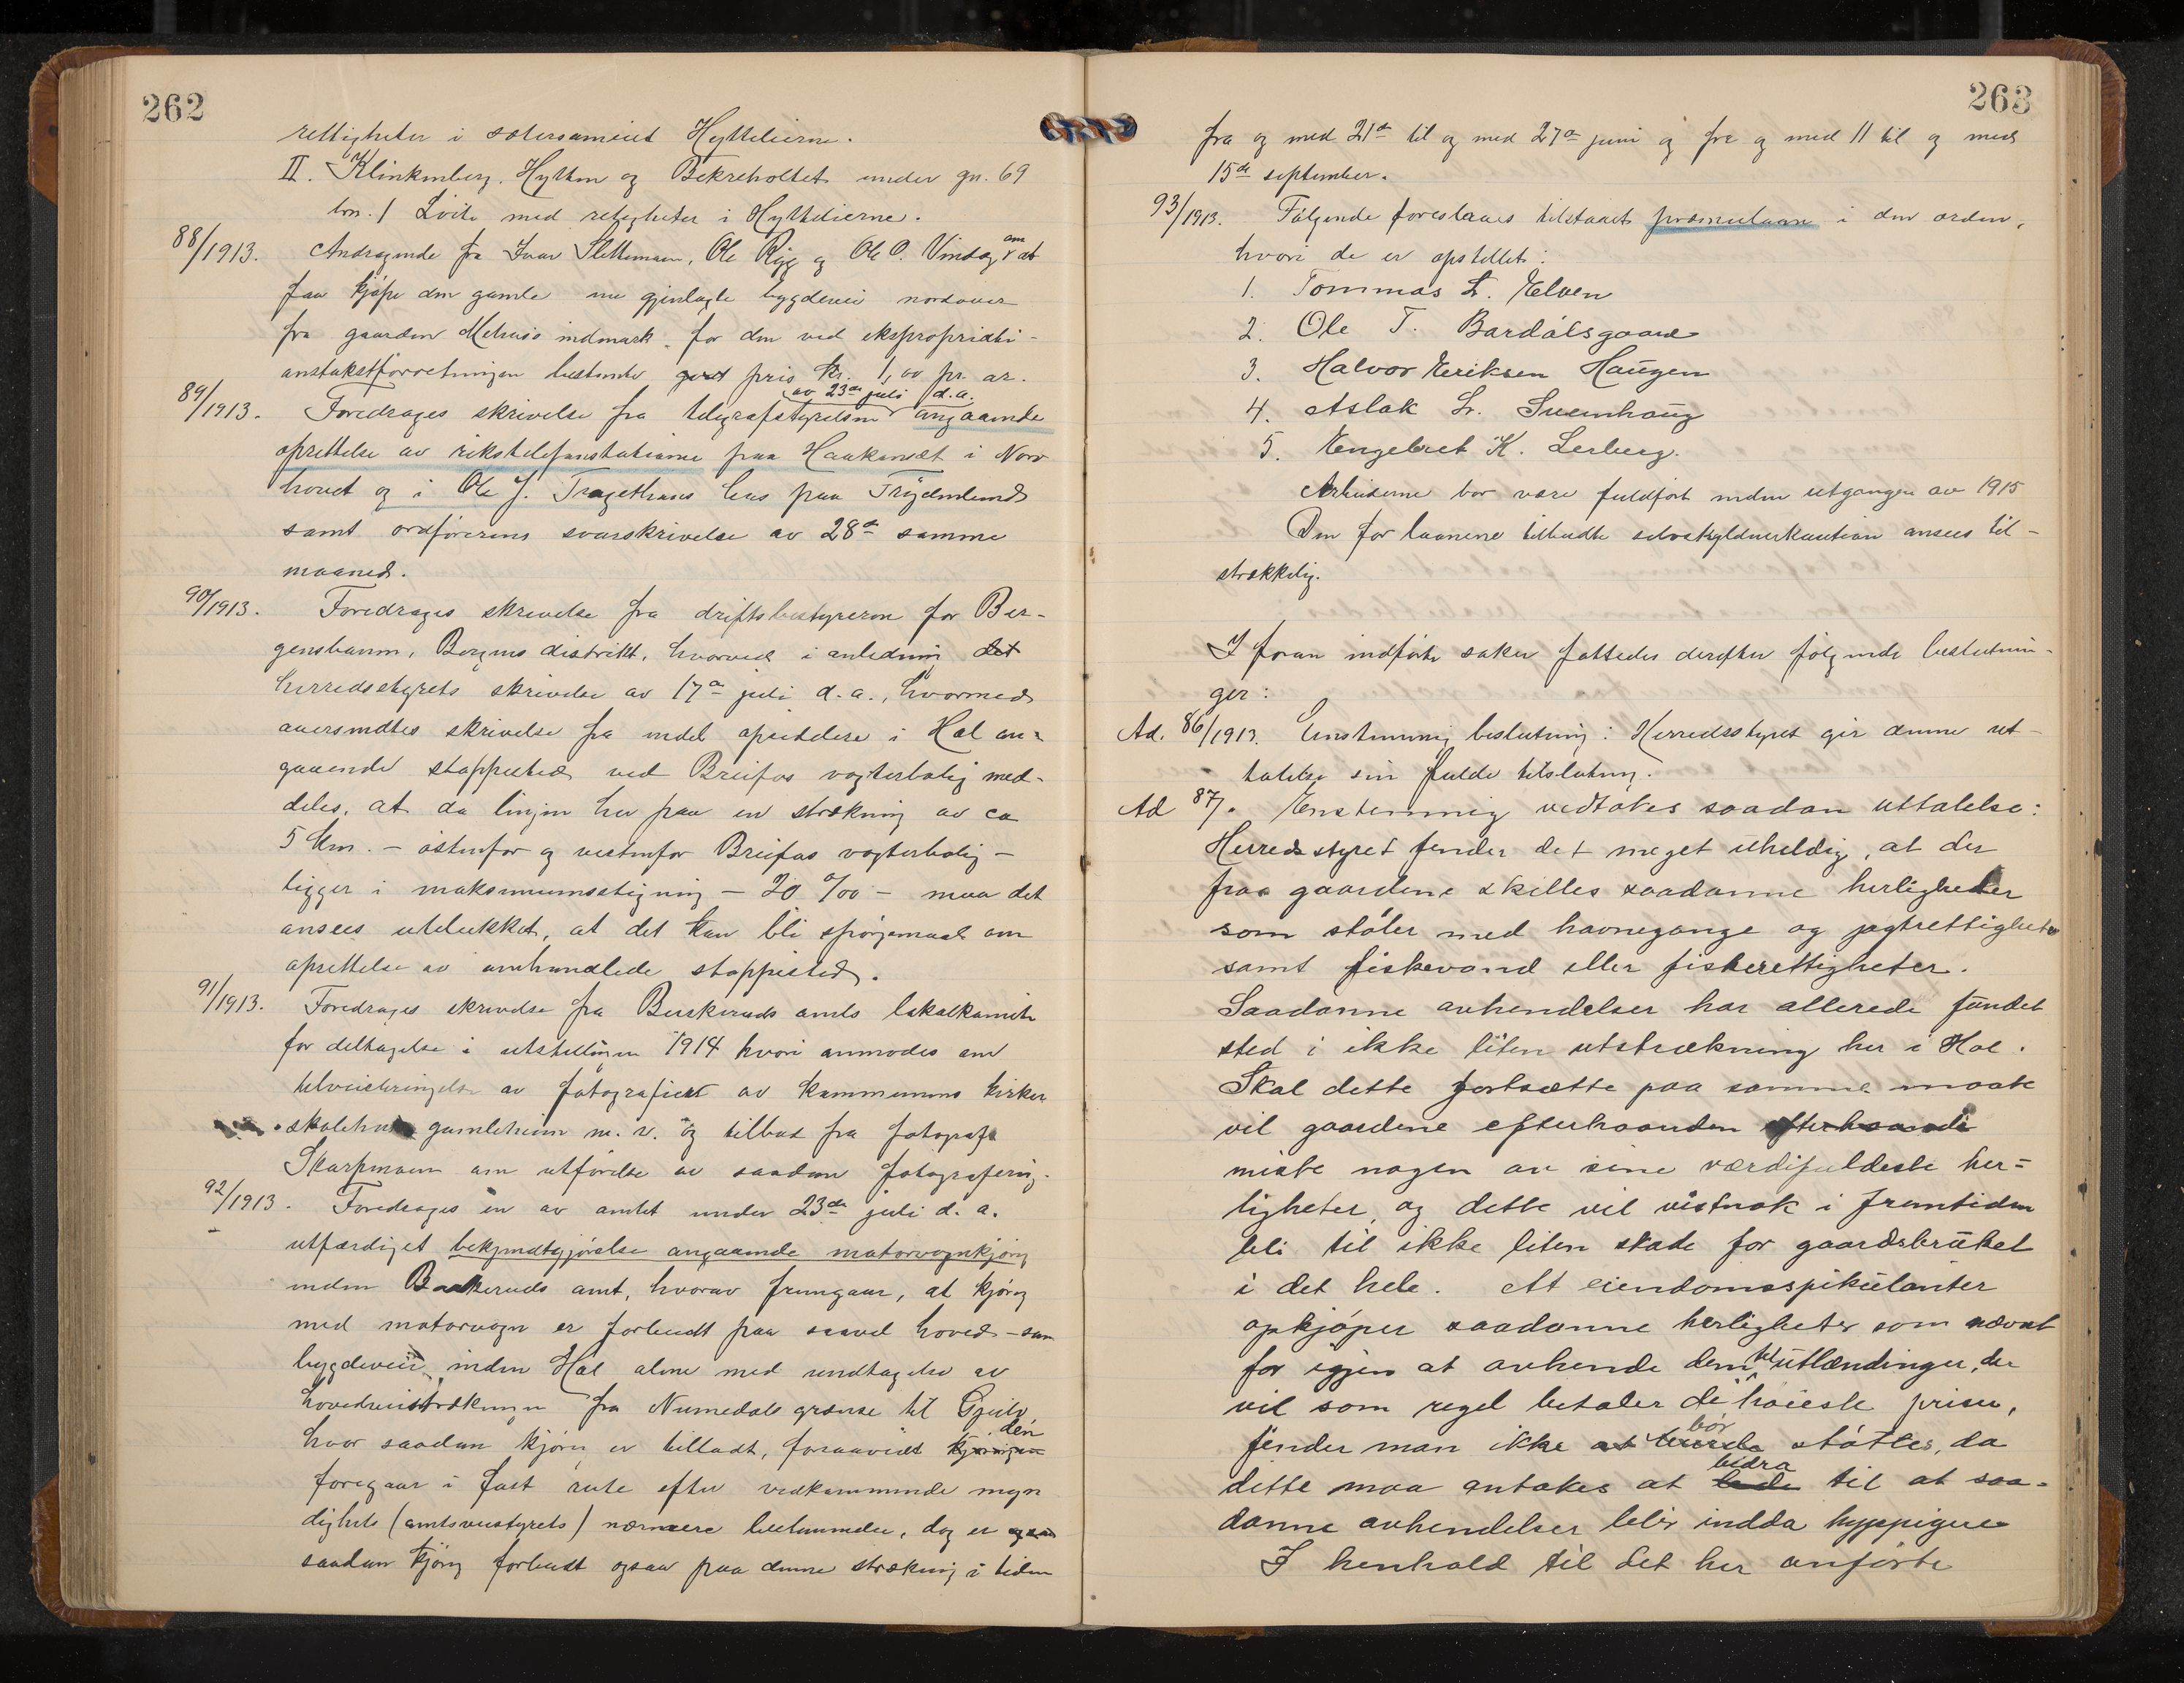 262
rettigheter i sætersameiet Hyttelierne.
II. Klinkenberg, Hytten og Bekreholtet under gn. 69
brn. 1 Lvite med retigheter i Hyttelierne.
88/1913. Andragende fra Ivar Slettemoen, Ole Rygg og Ole O. Vindegg om at
faa kjøpe den gamle nu gjenlagte bygdevei nordover
fra gaarden Mehuss indmark for den ved ekspropriati-
onstakstforretningen bestemte pris kr. 1,00 pr. ar.
av 23de juli d.a.
89/1913. Foredrages skrivelse fra telegrafstyrelsen angaaende
oprettelse av rikstelefonstationer paa Haakenset i Nord
hovet og i Ole J. Tragethons hus paa Trøgdenlund
samt ordførerens svarskrivelse av 28de samme
maaned.
90/1913. Foredrages skrivelse fra driftsbestyreren for Ber-
gensbanen, Bergens distrikt, hvorved i anledning det
herredsstyrets skrivelse av 17de juli d.a., hvormed
oversendtes skrivelse fra endel opsiddere i Hol an-
gaaende stoppested ved Breifos vogterbolig med-
deles, at da linjen her paa en strækning av ca
5 km. - østenfor og vestenfor Breifos vogterbolig -
ligger i maksimumsstigning - 20 ‰ - maa det
ansees utelukket, at det kan bli spørsmaal om
oprettelse av omhandlede stoppested.
91/1913. Foredrages skrivelse fra Buskeruds amts lokalkomite
for deltagelse i utstillingen 1914 hvori anmodes om
tilveiebringelse av fotografier av kommunens kirker
skolehus gamleheim m. v. og tilbud fra fotograf
Skarpmoen om utførelse av saadan fotografering.
92/1913. Foredrages en av amtet under 23de juli d. a.
utfærdiget bekjendtgjørelse angaaende motorvognkjøring
inden Buskeruds amt, hvorav fremgaar, at kjøring
med motorvogn er forbudt paa saavel hoved- som
bygdeveie inden Hol alene med undtagelse av
hovedveistrækningen fra Numedals grænse til Gjeilo,
hvor saadan kjøring er tilladt, forsaavidt kjøringen den
foregaar i fast rute efter vedkommende myn
dighets (amtsveistyrets) nærmere bestemmelse, dog er
saadan kjøring forbudt ogsaa paa denne strækning i tiden
263
fra og med 21de til og med 27de juni og fra og med 11 til og med
15de september.
93/1913. Følgende foreslaaes tilstaaet præmielaan i den orden,
hvori de er opstillet:
1. Tommas L. Elven
2. Ole T. Bardalsgaard
3. Halvor Eriksen Haugen
4. Aslak L. Sveinhaug
5. Engebret K. Lerberg.
Arbeiderne bør være fuldført inden utgangen av 1915
Den for laanene tilbudte selvskyldnerkaution ansees til-
strækkelig.
I foran indførte saker fattedes derefter følgende beslutnin-
ger:
Ad. 86/1913. Enstemmig beslutning: Herredsstyret gir denne ut-
talelse sin fulde tilslutning.
Ad 87. Enstemmig vedtokes saadan uttalelse:
Herredsstyret finder det meget uheldig, at der
fraa gaardene skilles saadanne herligheder
som støler med havnegange og jagtrettigheter
samt fiskevand eller fiskerettigheter.
Saadanne avhendelser har allerede fundet
sted i ikke liten utstrækning her i Hol.
Skal dette fortsætte paa samme maate
vil gaardene efterhaanden efterhaande
miste nogen av sine værdifuldeste her-
ligheter, og dette vil vistnok i fremtiden
bli til ikke liten skade for gaardsbruket
i det hele. At eiendomsspikulanter
opkjøper saadanne herligheter som nævnt
for igjen at avhende dem til utlændinger, der
vil som regel betaler de høieste priser,
finder man ikke at burde bør støttes, da
dette maa antakes at lede bidra til at saa-
danne avhendelser blir indda hyppigere
I henhold til det her anførte